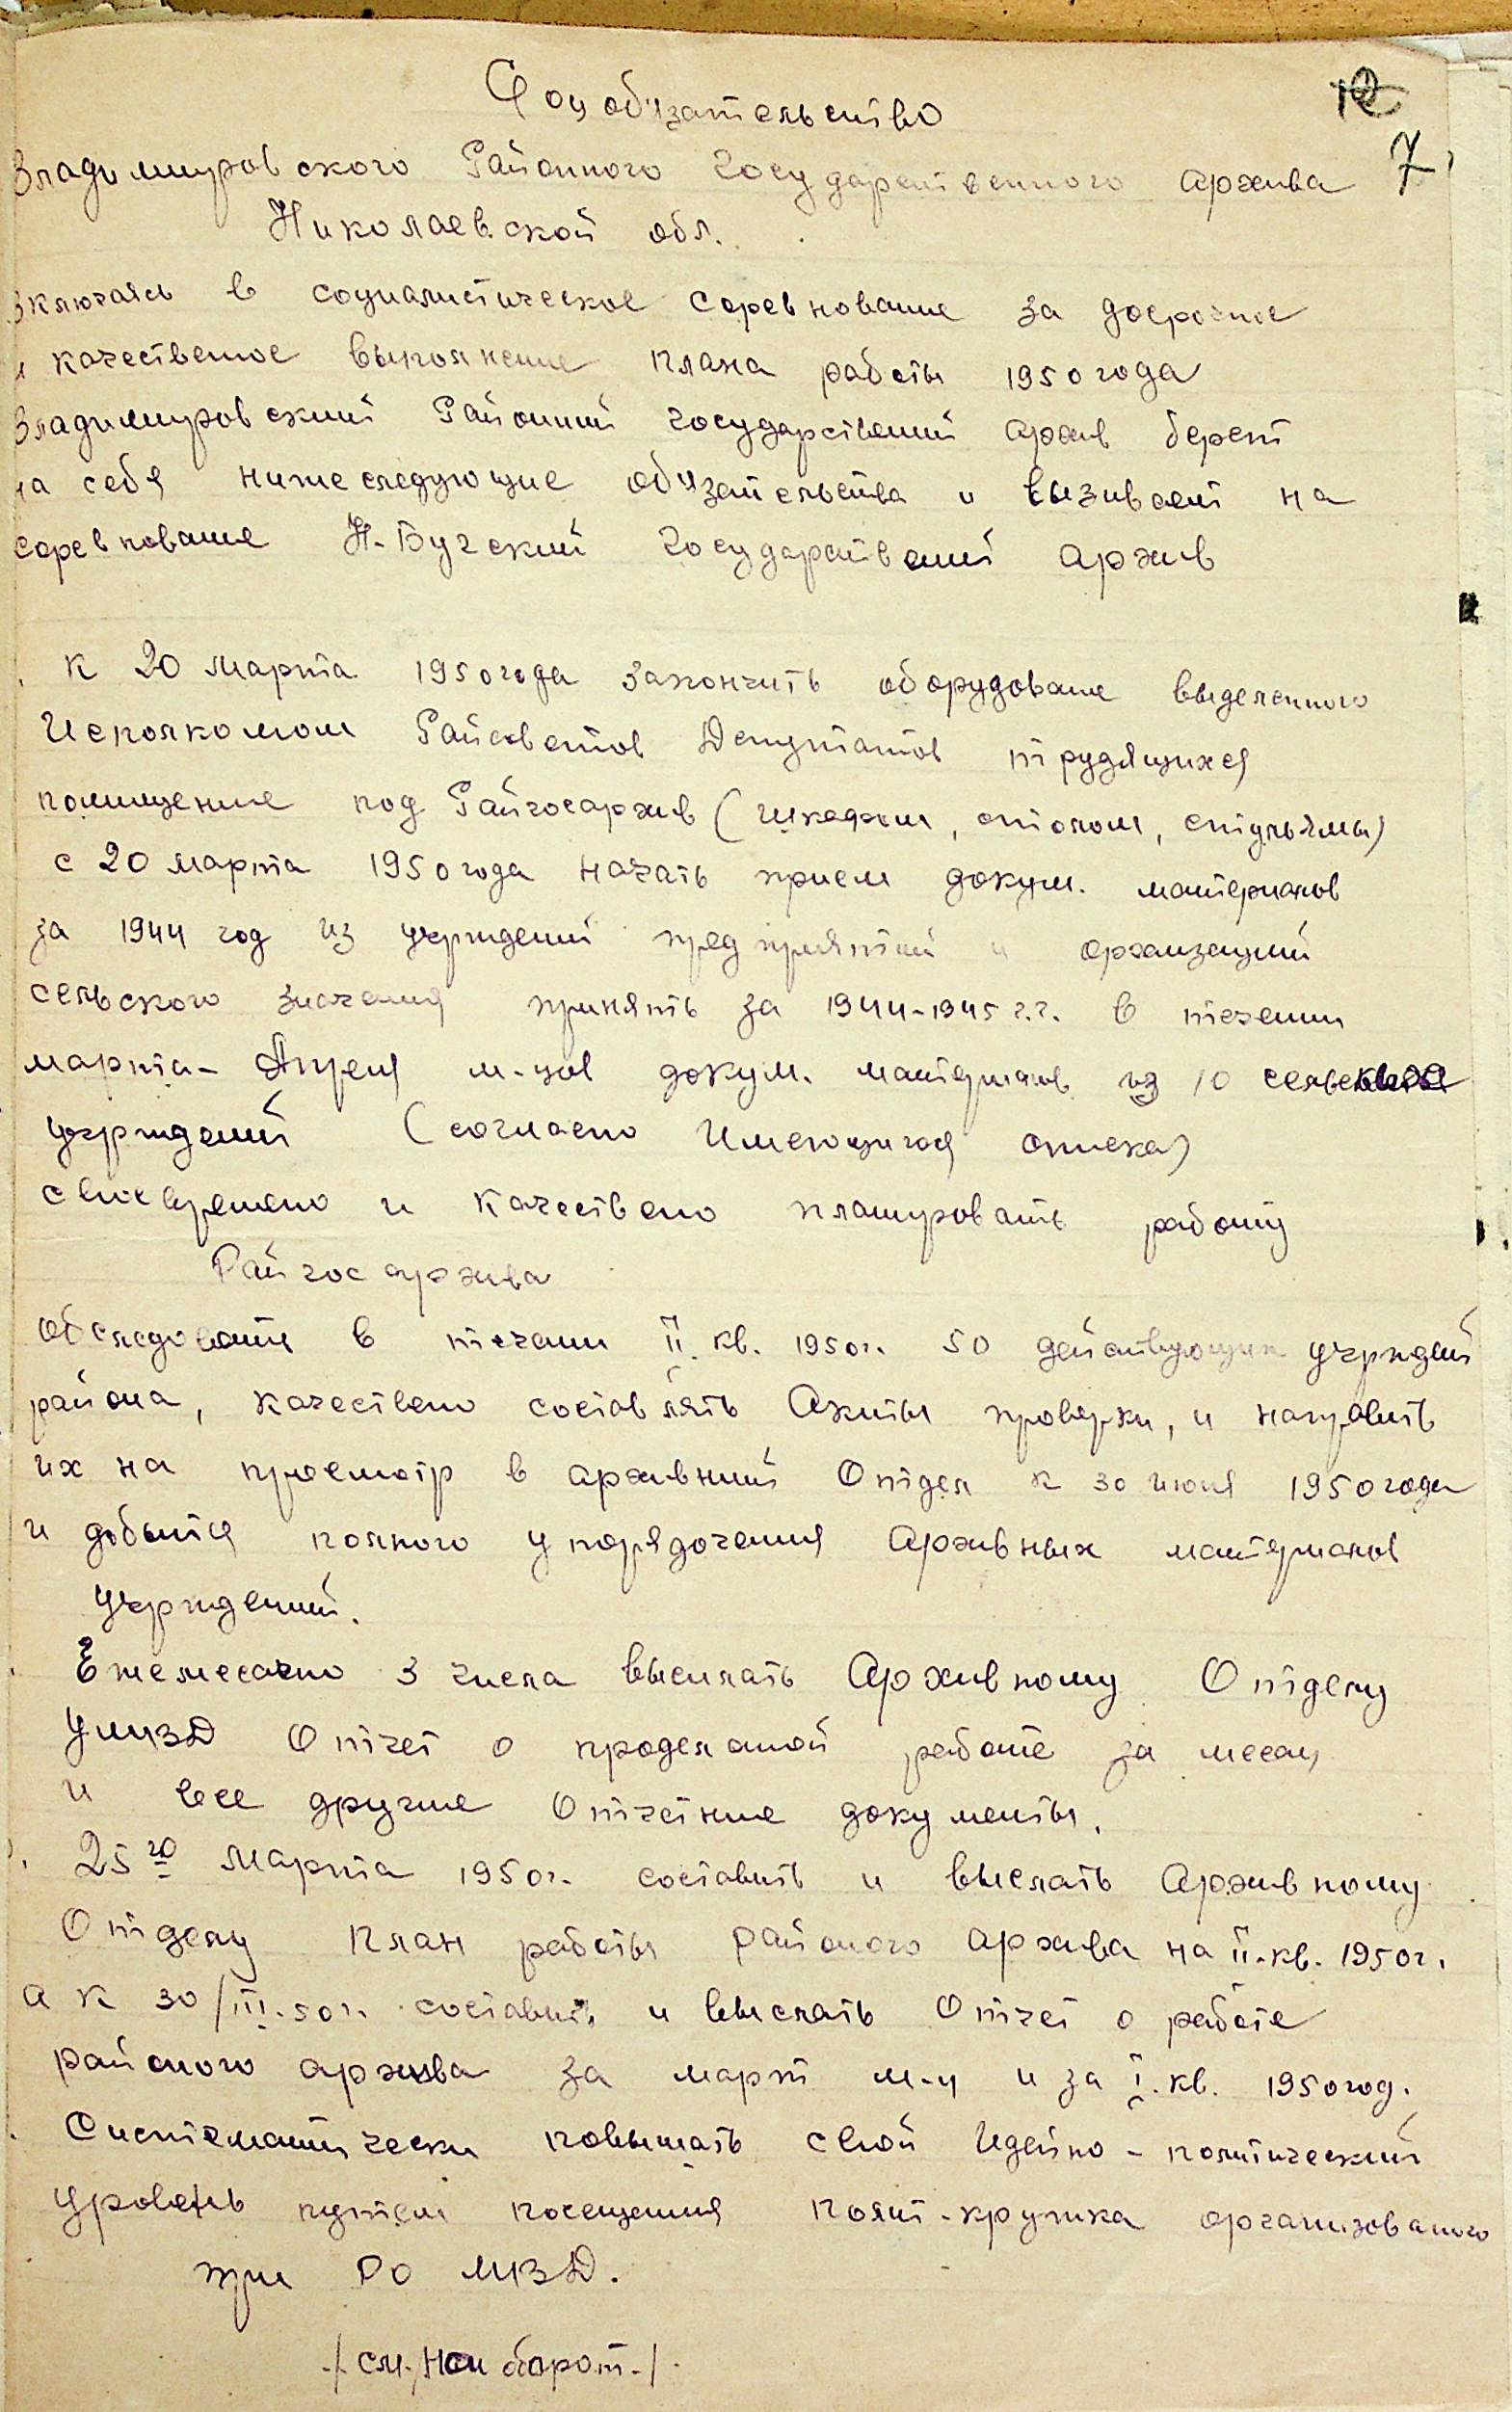 Соц обязательство
Владимировского Районного Государственного Архива 7
Николаевской обл.
Включаясь в социалистическое соревнование за досрочное
и качественое выполнение плана работы 1950 года
Владимировский Районний государственний архив берет
на себя нижеследующие обязательства и визивает на
соревнование Н-Бугский Государственний архив
К 20 марта 1950 года закончить оборудование выделенного
Исполкомом Райсоветов Депутатов трудящихся
помищение под Райгосархив (шкафом, столом, стульямы)
с 20 марта 1950 года начать прием докум. материалов
за 1944 год из учреждений предприятий и организаций
сельского значения принять за 1944-1945 г.г. в течении
марта-Апреля м-цов докум. материалов из 10
учреждений (согласно имеющигося списка)
своевремено и качествено планировать работу
Райгосархива
обследовать в течении II кв. 1950г. 50 действующих учреждений
района, качествено составлять Акты проверки, и направить
их на просмотр в архивний Отдел к 30 июня 1950 года
и добытся полного упорядочения Архивных материалов
учреждений.
Ежемесачно 3 числа высилать Архивному Отделу
УМВД Отчет о проделаной работе за месац
и все другие Отчетние документы.
25го марта 1950г. составить и выслать Архивному
Отделу план работы районого архива на II-кв. 1950г.
а к 30/III-50г. составить и выслать Отчет о работе
районого архива за март м-ц и за I. кв. 1950год.
Систематически повышать свой Идейно-политический
уровень путем посещения полит-кружка организованого
при РО МВД.
/см, на оборот./